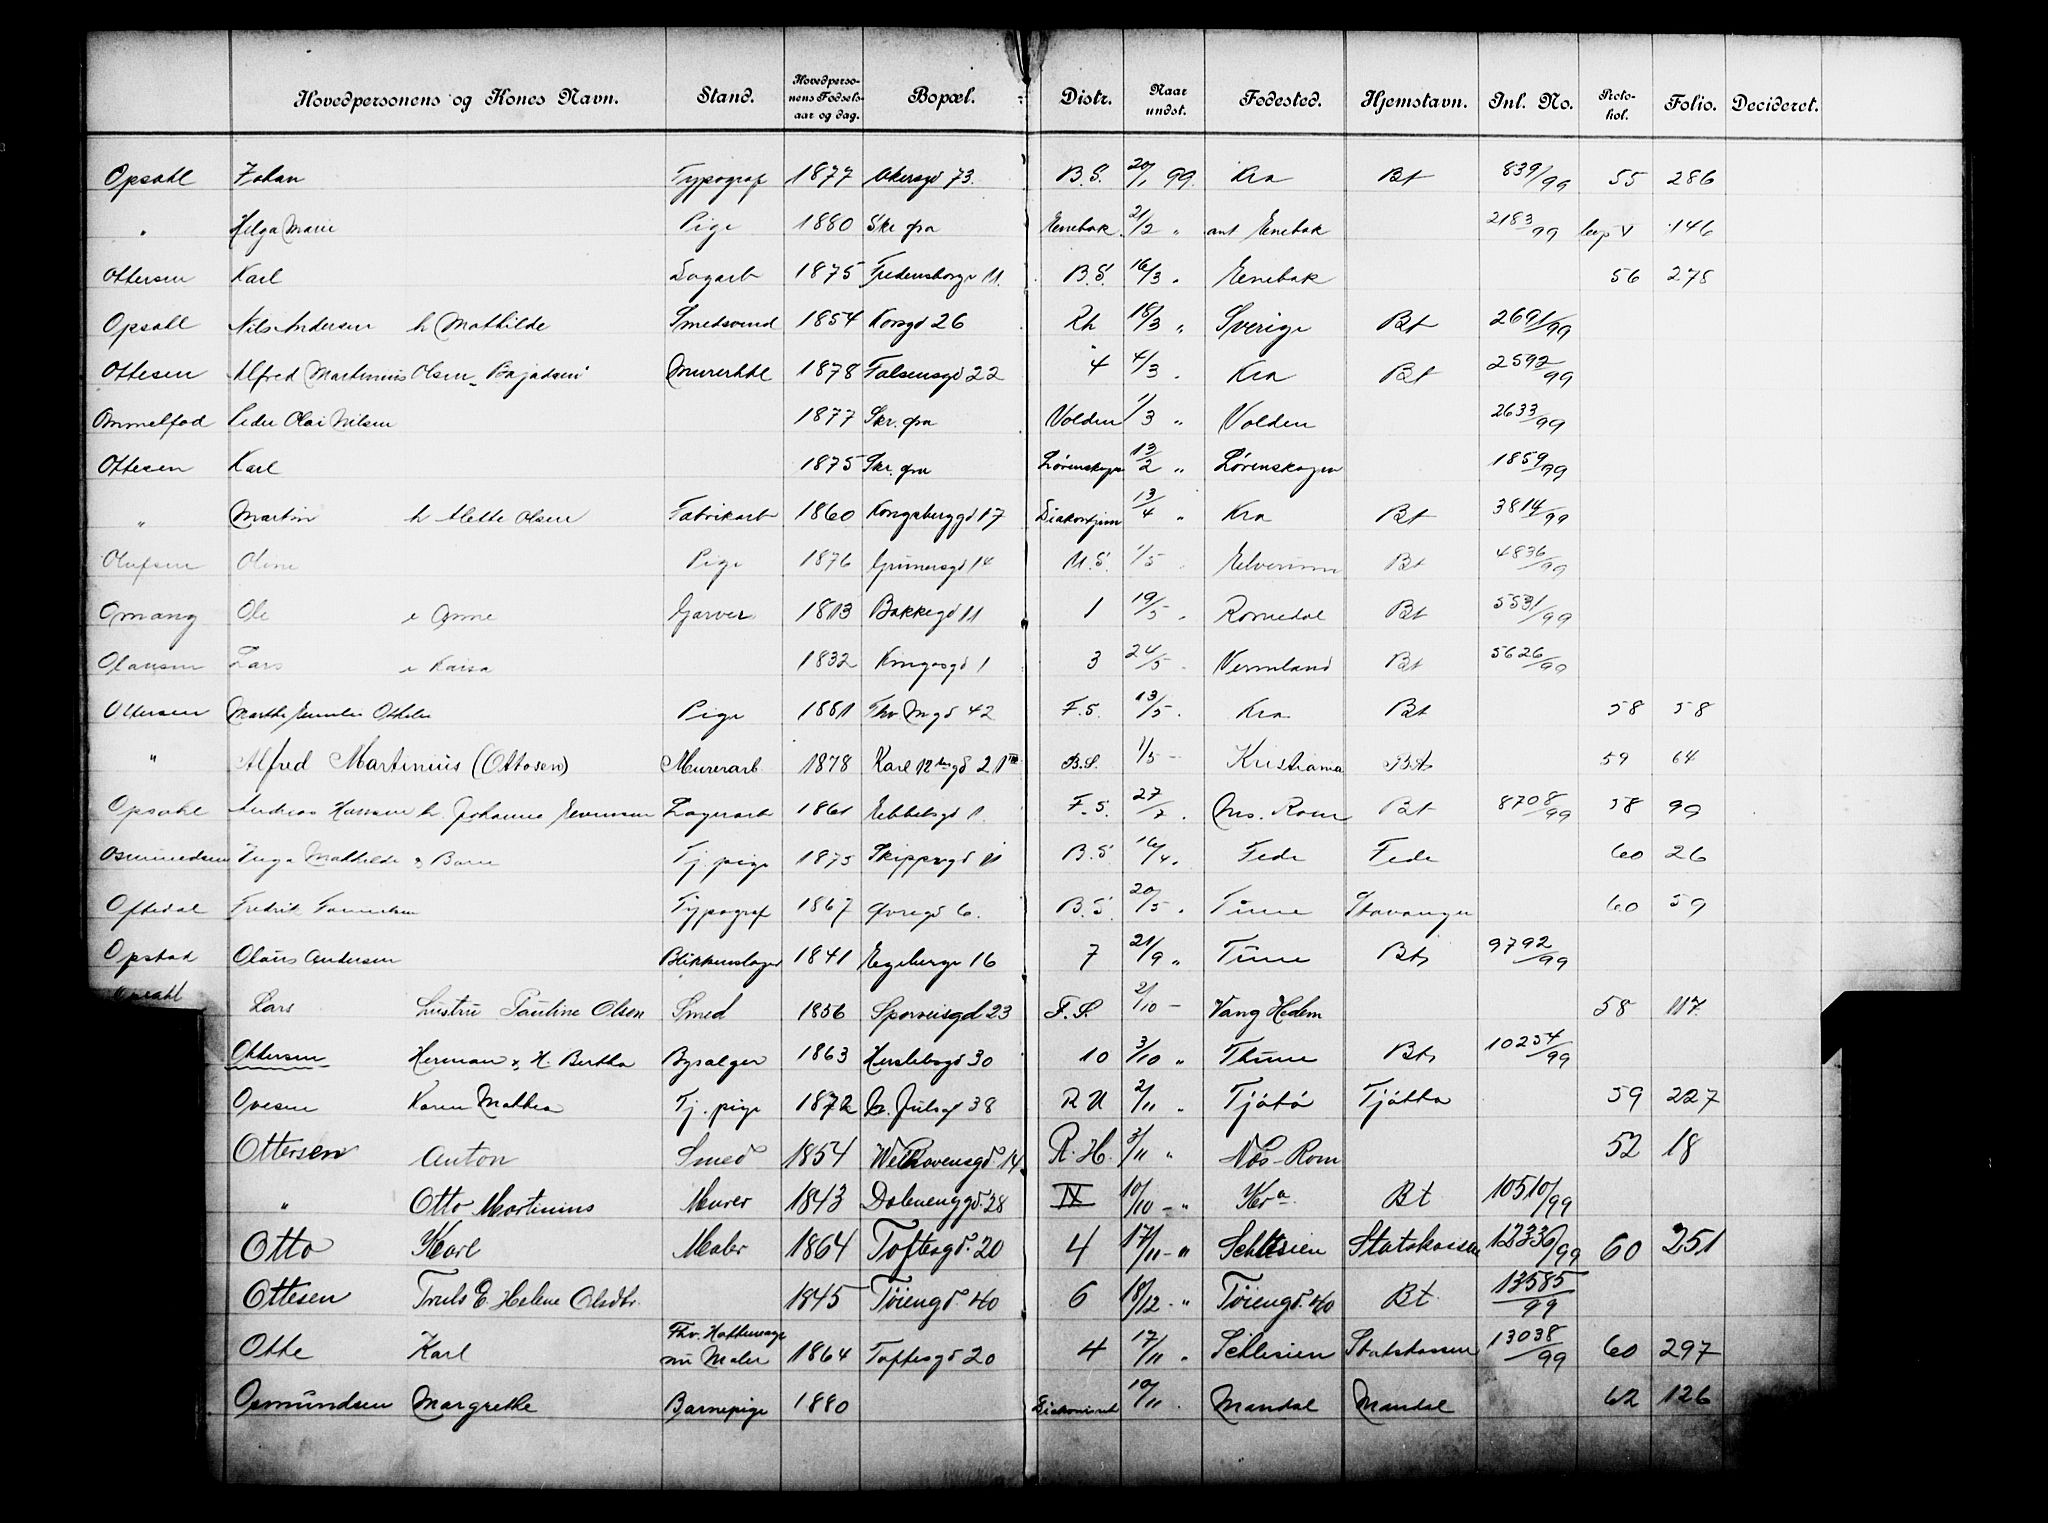 Hovedpersonens og Kones Navn. Stand. Hovedperso-nens Fødsels-aar og dag. Bopæl. Distr. Naar undst. Fødested. Hjemstavn. Inl. No. Proto-kol. Folio. Decideret.
Opsahl Johan Typograf 1877 Akersgd 73. B.S. 20/1 99. Kra Bt 839/99 55 286
" Helga Marie Pige 1880 Skr. fra Enebak 21/2 " ant Enebak 2183/99 146
Ottersen Karl Dagarb 1875 Fredensborgv 11. B.S. 16/3 " Enebak 56 275
Opsahl Nils Andersen h Mathilde Smedsvend 1854 Korsgd 26 Rh 18/3 " Sverige Bt 2691/99
Ottesen Alfred Martinius Olsen Murerhdl 1878 Falsensgd 22 4 4/3 " Kra Bt 2592/99
Ommelfod Peder Olai Nilsen 1877 Skr. fra Volden 1/3 " Volden 2633/99
Ottesen Karl 1875 Skr. fra Lørenskogen 13/2 " Lørenskogen 1859/99
" Martin h Mette Olsen Fabrikarb 1860 Kongsberggd 17 Diakonhjem 13/4 " Kra Bt 3814/99
Olufsen Oline Pige 1876 Grünersgd 14 U.S. 1/5 " Elverum Bt 4836/99
Omang Ole e Anne Garver 1813 Bakkegd 11 1 19/5 " Romedal Bt 5531/99
Olausen Lars e Kaisa 1832 Kongosgd 1 3 24/5 " Vermland Bt 5626/99
Ottersen Marthe Emilie Othilie Pige 1881 Thv Mgd 42 F.S. 13/5 " Kra Bt 58 58
" Alfred Martinius (Ottosen) Murerarb. 1878 Karl 12 tes gd 21 III B.S. 1/5 - Kristiania Bt 59 64
Opsahl Andreas Hansen h. Johanne Evensen Lagerarb 1861 Ebbelsgd 1. F.S. 27/7 " Ns. Rom Bt 8708/99 58 99
Osmundsen Inga Mathilde & Barn Tj. pige 1875 Skippergd 11 B.S. 16/4 " Fede Fede 60 26
Oftedal Fredrik Typograf 1867 Øvregd 6. B.S. 20/5 " Time Stavanger 60 59
Opstad Olaus Andersen Blikkenslager 1841 Egebergv 16 7 21/9 " Tune Bt 9792/99
Opsahl Lars Hustru Pauline Olsen Smed 1856 Sporveisgd 23 F.S. 2/10 - Vang Hedem 58 117.
Ottersen Herman & H. Bertha Bysælger 1863 Herslebsgd 30 10 3/10 " Thune Bt 10254/99
Ovesen Karen Mathea Tj. pige 1872 N. Julsgt 38 R U 2/11 " Tjøtø Tjøtta 59 227
Ottersen Anton Smed 1854 Welhavensgd. 14 R. H. 3/11 " Næs-Rom 52 18
" Otto Martinius Murer 1843 Dalenenggd. 28 IV 10/10 - " Kra. Bt 10510/99
Otto Karl Maler 1864 Toftesgd. 20 4 17/11 - " Schlesien Statskassen 12336/99 60 251
Ottesen Truls E. Helene Olsdtr. 1845 Tøiengd. 40 6 18/12 - " Tøiengd. 40 Bt 13585/99
Otte Karl Fhv. Hattemager nu Maler 1864 Toftesgd 20 4 17/11 " Schlesien Statskassen 13038/99 60 297
Osmundsen Margrethe Barnepige 1880 Diakonissh 10/11 " Mandal Mandal 62 126